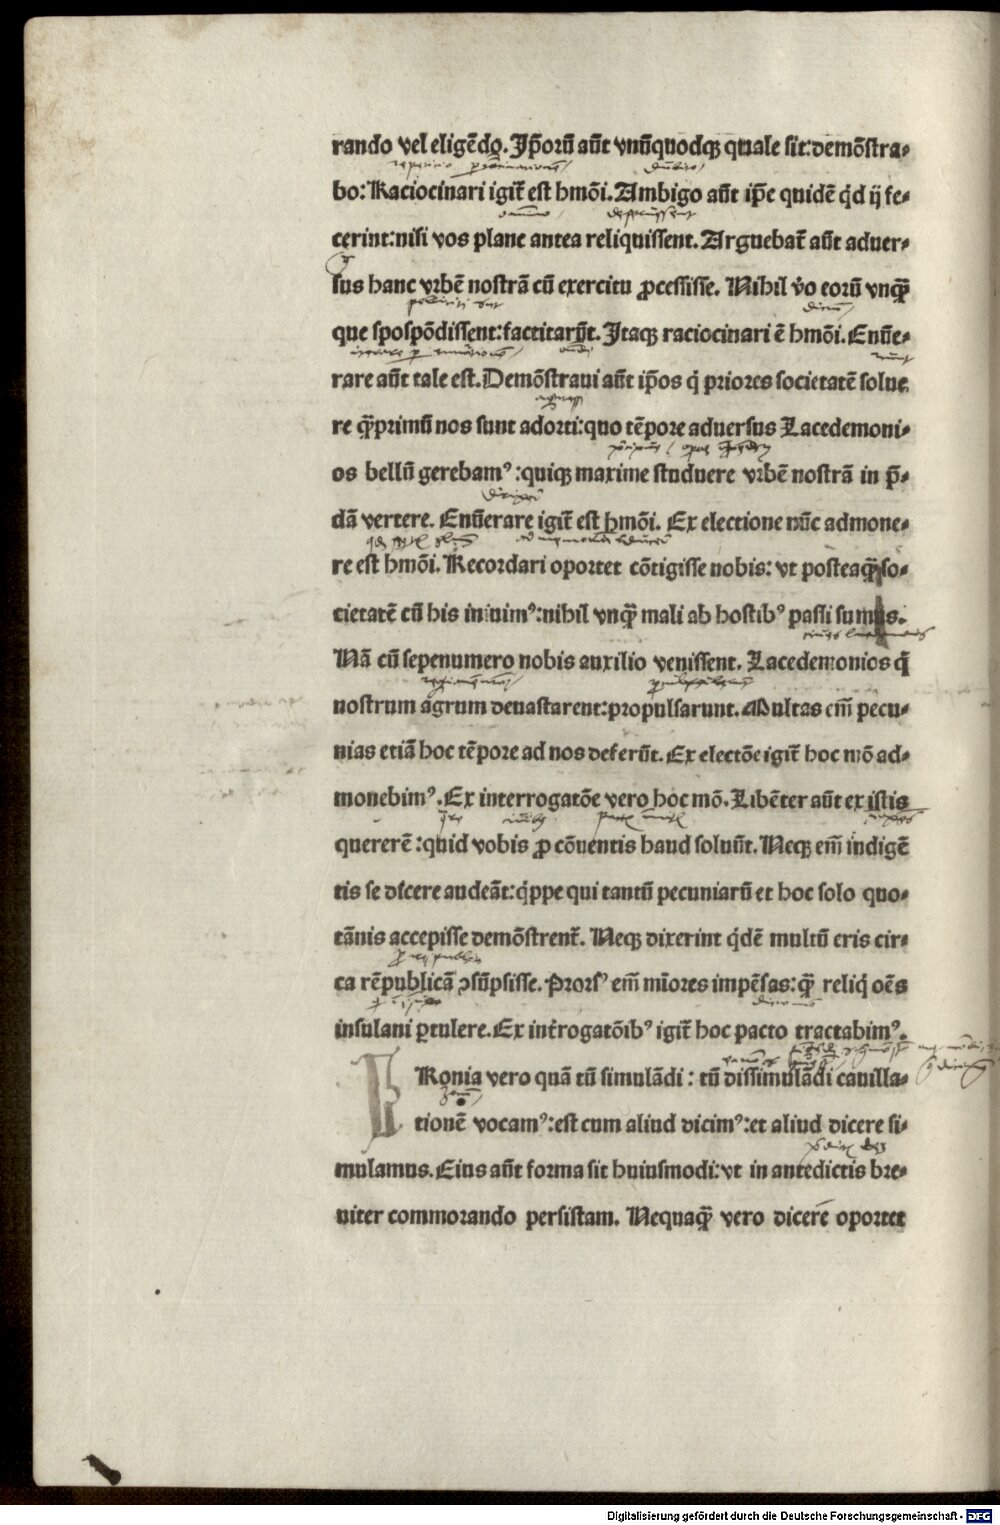 rando vel eligēdo. Ip̄orū aūt vnūquodqꝫ quale sit: demōstra-
bo: Raciocinari igiť est hmōi. Ambigo aūt ip̄e quidē qͥd ij fe-
cerint: nisi vos plane antea reliquissent. Arguebať aūt aduer-
sus hanc vrbē nostrā cū exercitu ꝓcessisse. Nihil v̇o eorū vnqꝫ̄
que spospōdissent: factitarūt. Itaqꝫ raciocinari ē hmōi. Enūe-
rare aūt tale est. Demōstraui aūt ip̄os qͥ priores societatē solue
re qꝫ̄primū nos sunt adorti: quo tēpore aduersus Lacedemoni-
os bellū gerebamꝰ: quiqꝫ maxime studuere vrbē nostrā in p̄-
dā vertere. Enūerare igiť est hmōi. Ex electione nūc admone-
re est hmōi. Recordari oportet cōtigisse nobis: vt posteaqꝫ̄ so-
cietatē cū his iniuimꝰ: nihil vnqꝫ̄ mali ab hostibꝰ passi sumus.
Nā cū sepenumero nobis auxilio venissent. Lacedemonios qͥ
nostrum agrum deuastarent: propulsarunt. Multas em̄ pecu-
nias etiā hoc tēpore ad nos deferūt. Ex electōe igiť hoc mō ad-
monebimꝰ. Ex interrogatōe vero hoc mō. Libēter aūt ex istis
quererē: quid vobis ꝓ cōuentis haud soluūt. Neqꝫ em̄ indigē
tis se dicere audeāt: qͥppe qui tantū pecuniarū et hoc solo quo-
tānis accepisse demōstrenť. Neqꝫ dixerint qͥdē multū eris cir-
ca rēpublicā ꝯsūpsisse. Prorsꝰ em̄ mīores impēsas: qꝫ̄ reliqͥ oēs
insulani ꝑtulere. Ex inťrogatōibꝰ igiť hoc pacto tractabimꝰ.
IRonia vero quā tū simulādi: tū dissimulādi cauilla-
tionē vocamꝰ: est cum aliud dicimꝰ: et aliud dicere si-
mulamus. Eius aūt forma sit huiusmodi: vt in antedictis bre-
uiter commorando persistam. Nequaqꝫ̄ vero dicere oportet
Digitalisierung gefördert durch die Deutsche Forschungsgemeinschaft - DFG